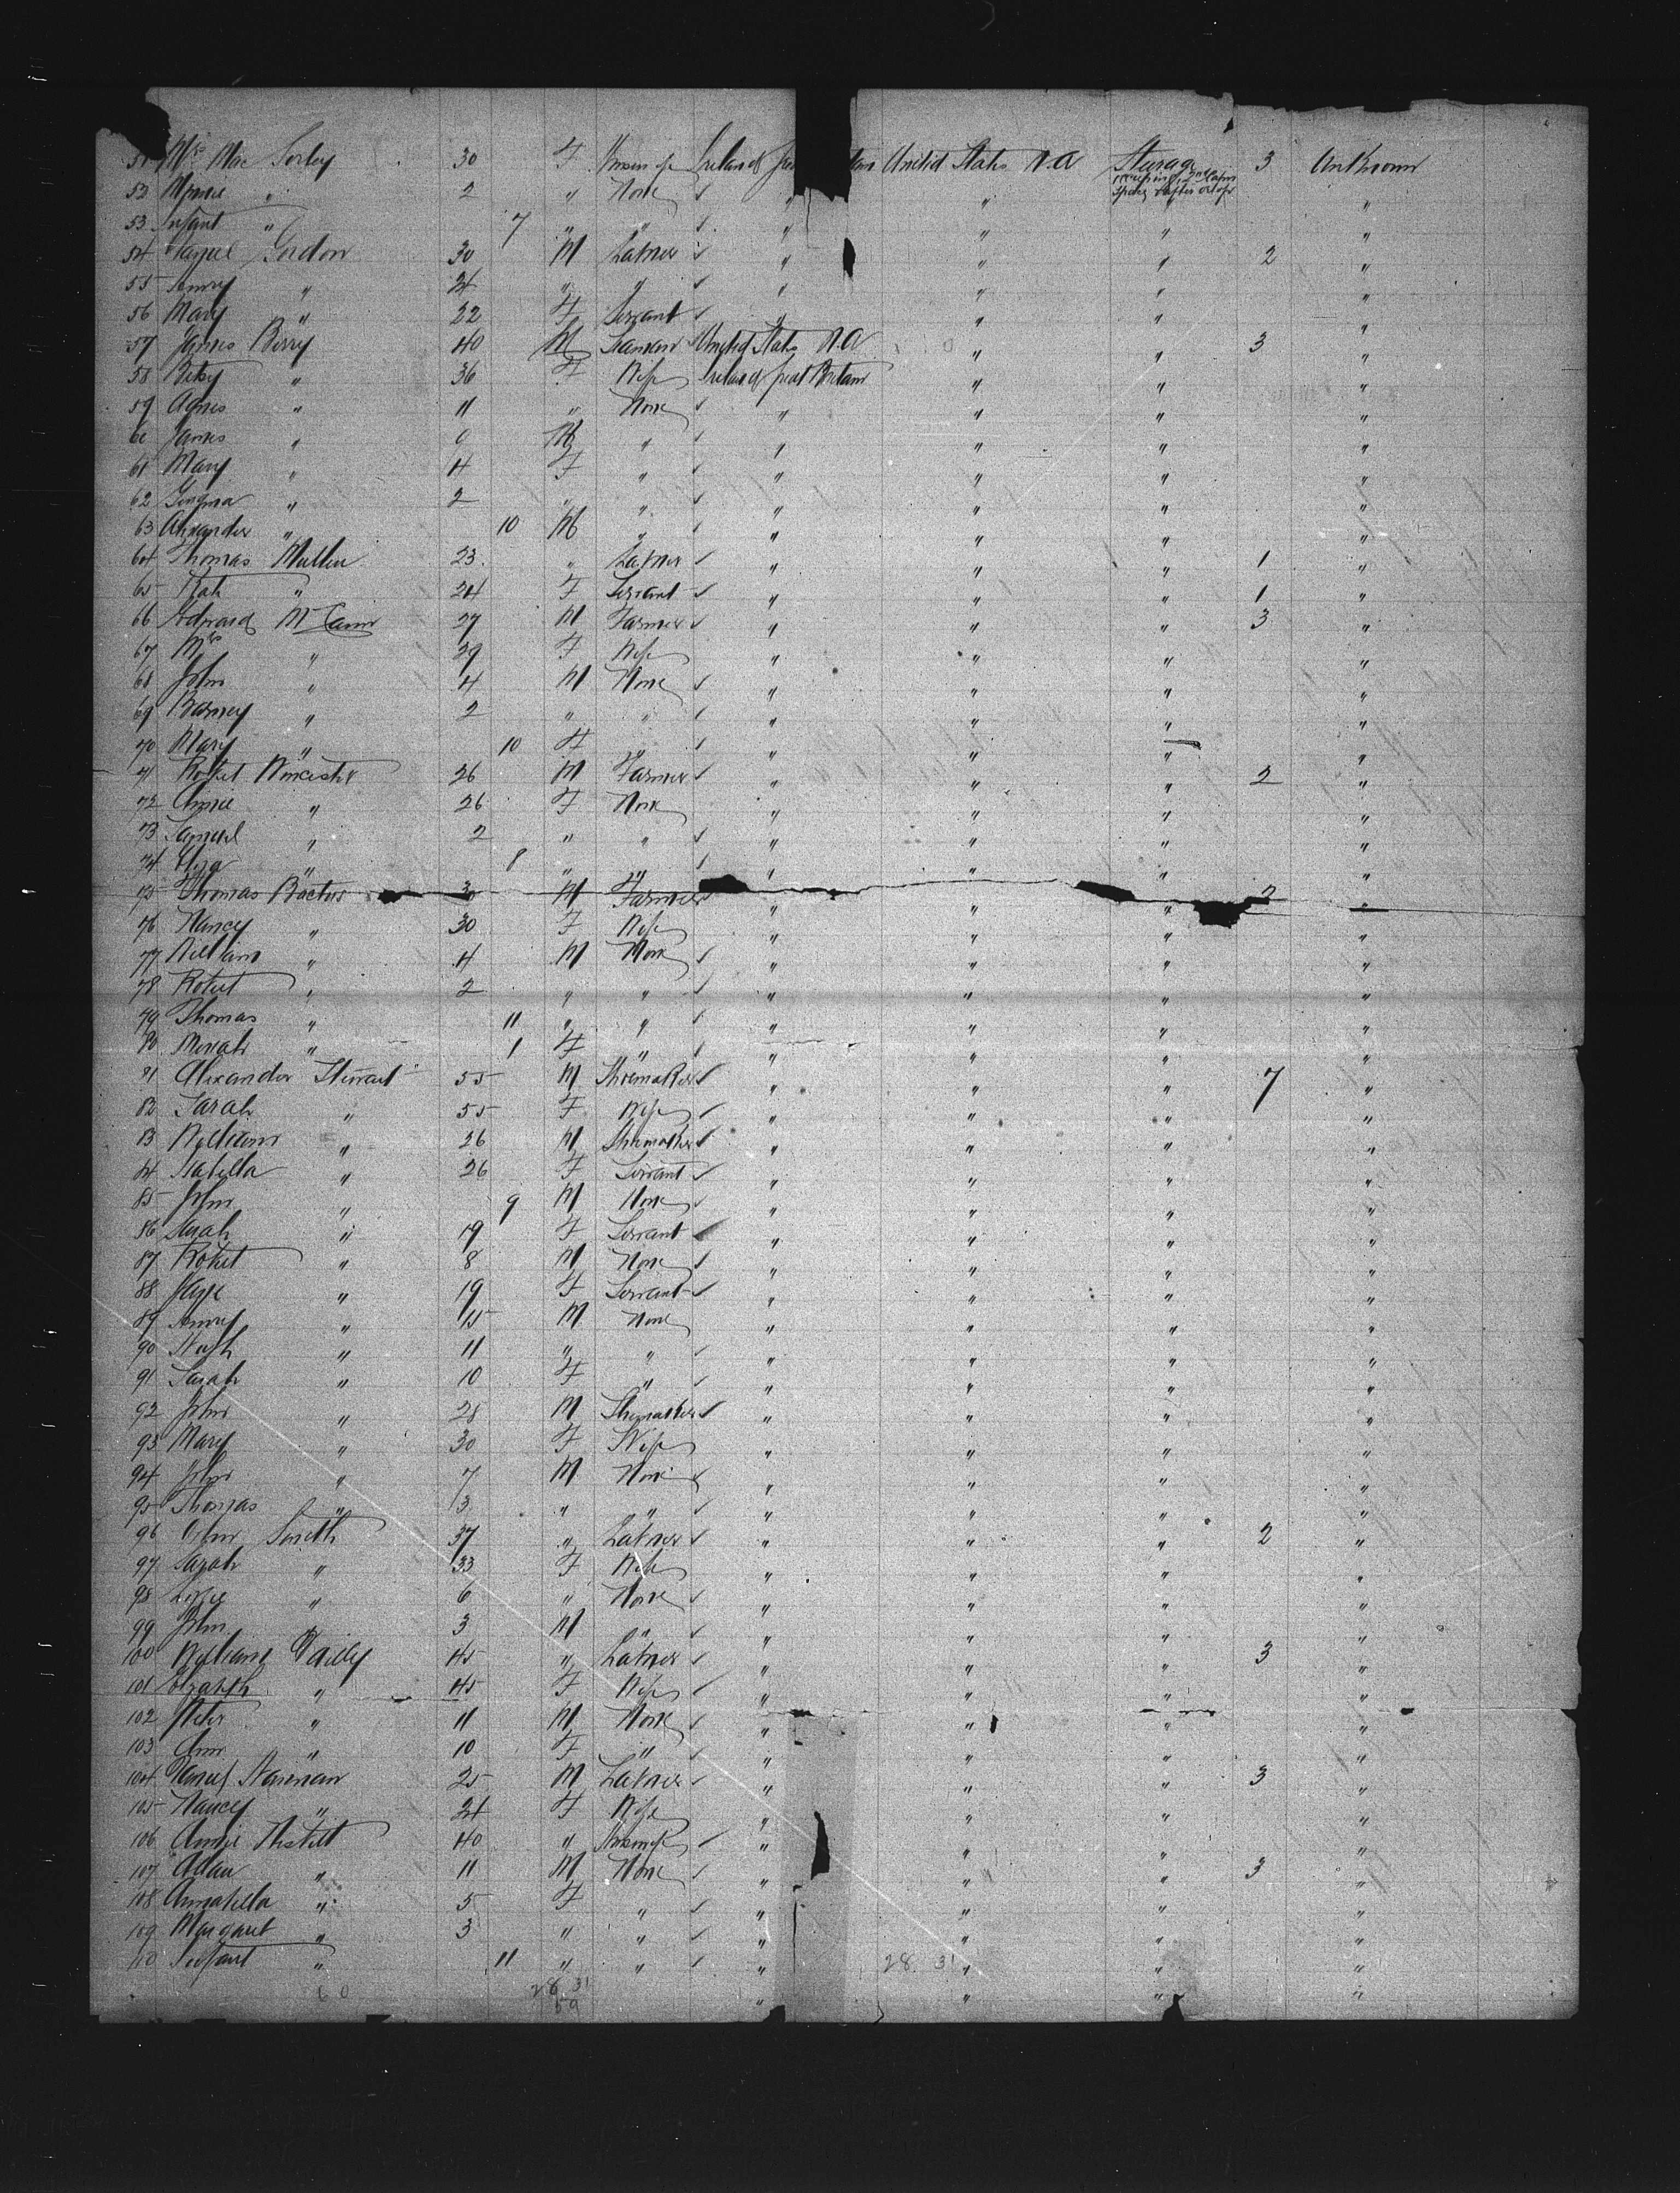 51 Mrs Mc Sorley 30 F Ireland United States N.A Sturage 3 Unknown
52 2 " None " " " "
53 Infant " 7 " " " " " "
54 Gordon 30 M Labner " " " 2 "
55 Henry " 24 " " " " " "
56 Mary " 22 F Servant " " " "
57 James Berry 40 M Seaman United States N.A " " 3 "
58 Betsy " 36 F Wife Ireland Great Britain " " "
59 Agnes " 11 " None " " " "
60 James " M " " " " "
61 Mary " 4 F " " " " "
62 " 2 " " " " " "
63 Alexander " 10 M " " " " "
64 Thomas Mullen 23 " Labner " " " 1 "
65 " 24 F Servant " " " 1 "
66 Edward McCann 27 M Farmer " " " 3 "
67 Mrs " 29 F Wife " " " "
68 John " 4 M None " " " "
69 Barney " 2 " " " " " "
70 Mary " 10 F " " " " "
71 Robert Worcester 26 M Farmer " " " 2 "
72 Annie " 26 F None " " " "
73 Samuel " 2 " " " " " "
74 Eliza " 8 " " " " " "
75 Thomas 30 M Farmer " " " 2 "
76 Nancy " 30 F Wife " " " "
77 William " 4 M None " " " "
78 Robert " 2 " " " " " "
79 Thomas " 11 " " " " " "
80 " 1 F " " " " "
81 Alexander Stewart 55 M Shoemaker " " " 7 "
82 Sarah " 55 F Wife " " " "
83 William " 26 M Shoemaker " " " "
84 Isabella " 26 F Servant " " " "
85 John " 9 M None " " " "
86 Sarah " 19 F Servant " " " "
87 Robert " 8 M None " " " "
88 " 19 F Servant " " " "
89 Henry " 15 M None " " " "
90 Hugh " 11 " " " " " "
91 Sarah " 10 F " " " " "
92 John " 28 M Shoemaker " " " "
93 Mary " 30 F Wife " " " "
94 John " 7 M None " " " "
95 Thomas " 3 " " " " " "
96 John Smith 37 " Labner " " " 2 "
97 Sarah " 33 F Wife " " " "
98 Lizzie " 6 " None " " " "
99 John 3 M " " " " "
100 William 45 " Labner " " " 3 "
101 Elizabeth " 45 F Wife " " " "
102 Peter " 11 M None " " " "
103 Ann " 10 F " " " " "
104 25 M Labner " " " 3 "
105 Nancy " 24 F Wife " " " "
106 Annie 40 " " " " "
107 Allan " 11 M None " " " 3 "
108 Annabella " 5 F " " " " "
109 Margaret " 3 " " " " " "
110 Infant " 11 " " " 28 31 " " "
60 28 31 " " " "
59